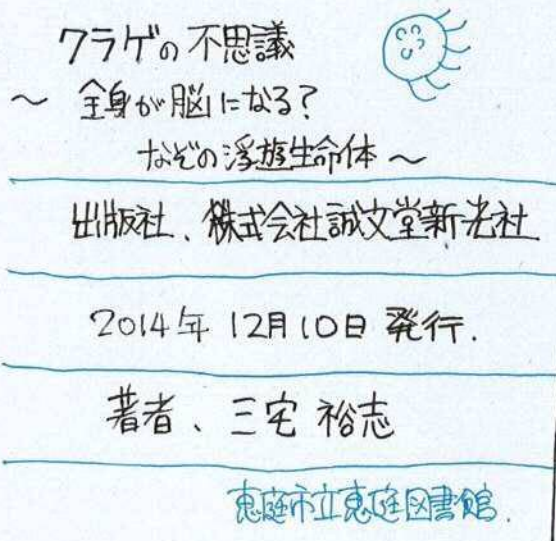 クラゲの不思議
～ 全身が脳になる?
なぞの浮遊生命体 ～
出版社、株式会社誠文堂新光社
2014年 12月10日 発行.
著者、三宅 裕志
恵庭市立恵庭図書館.